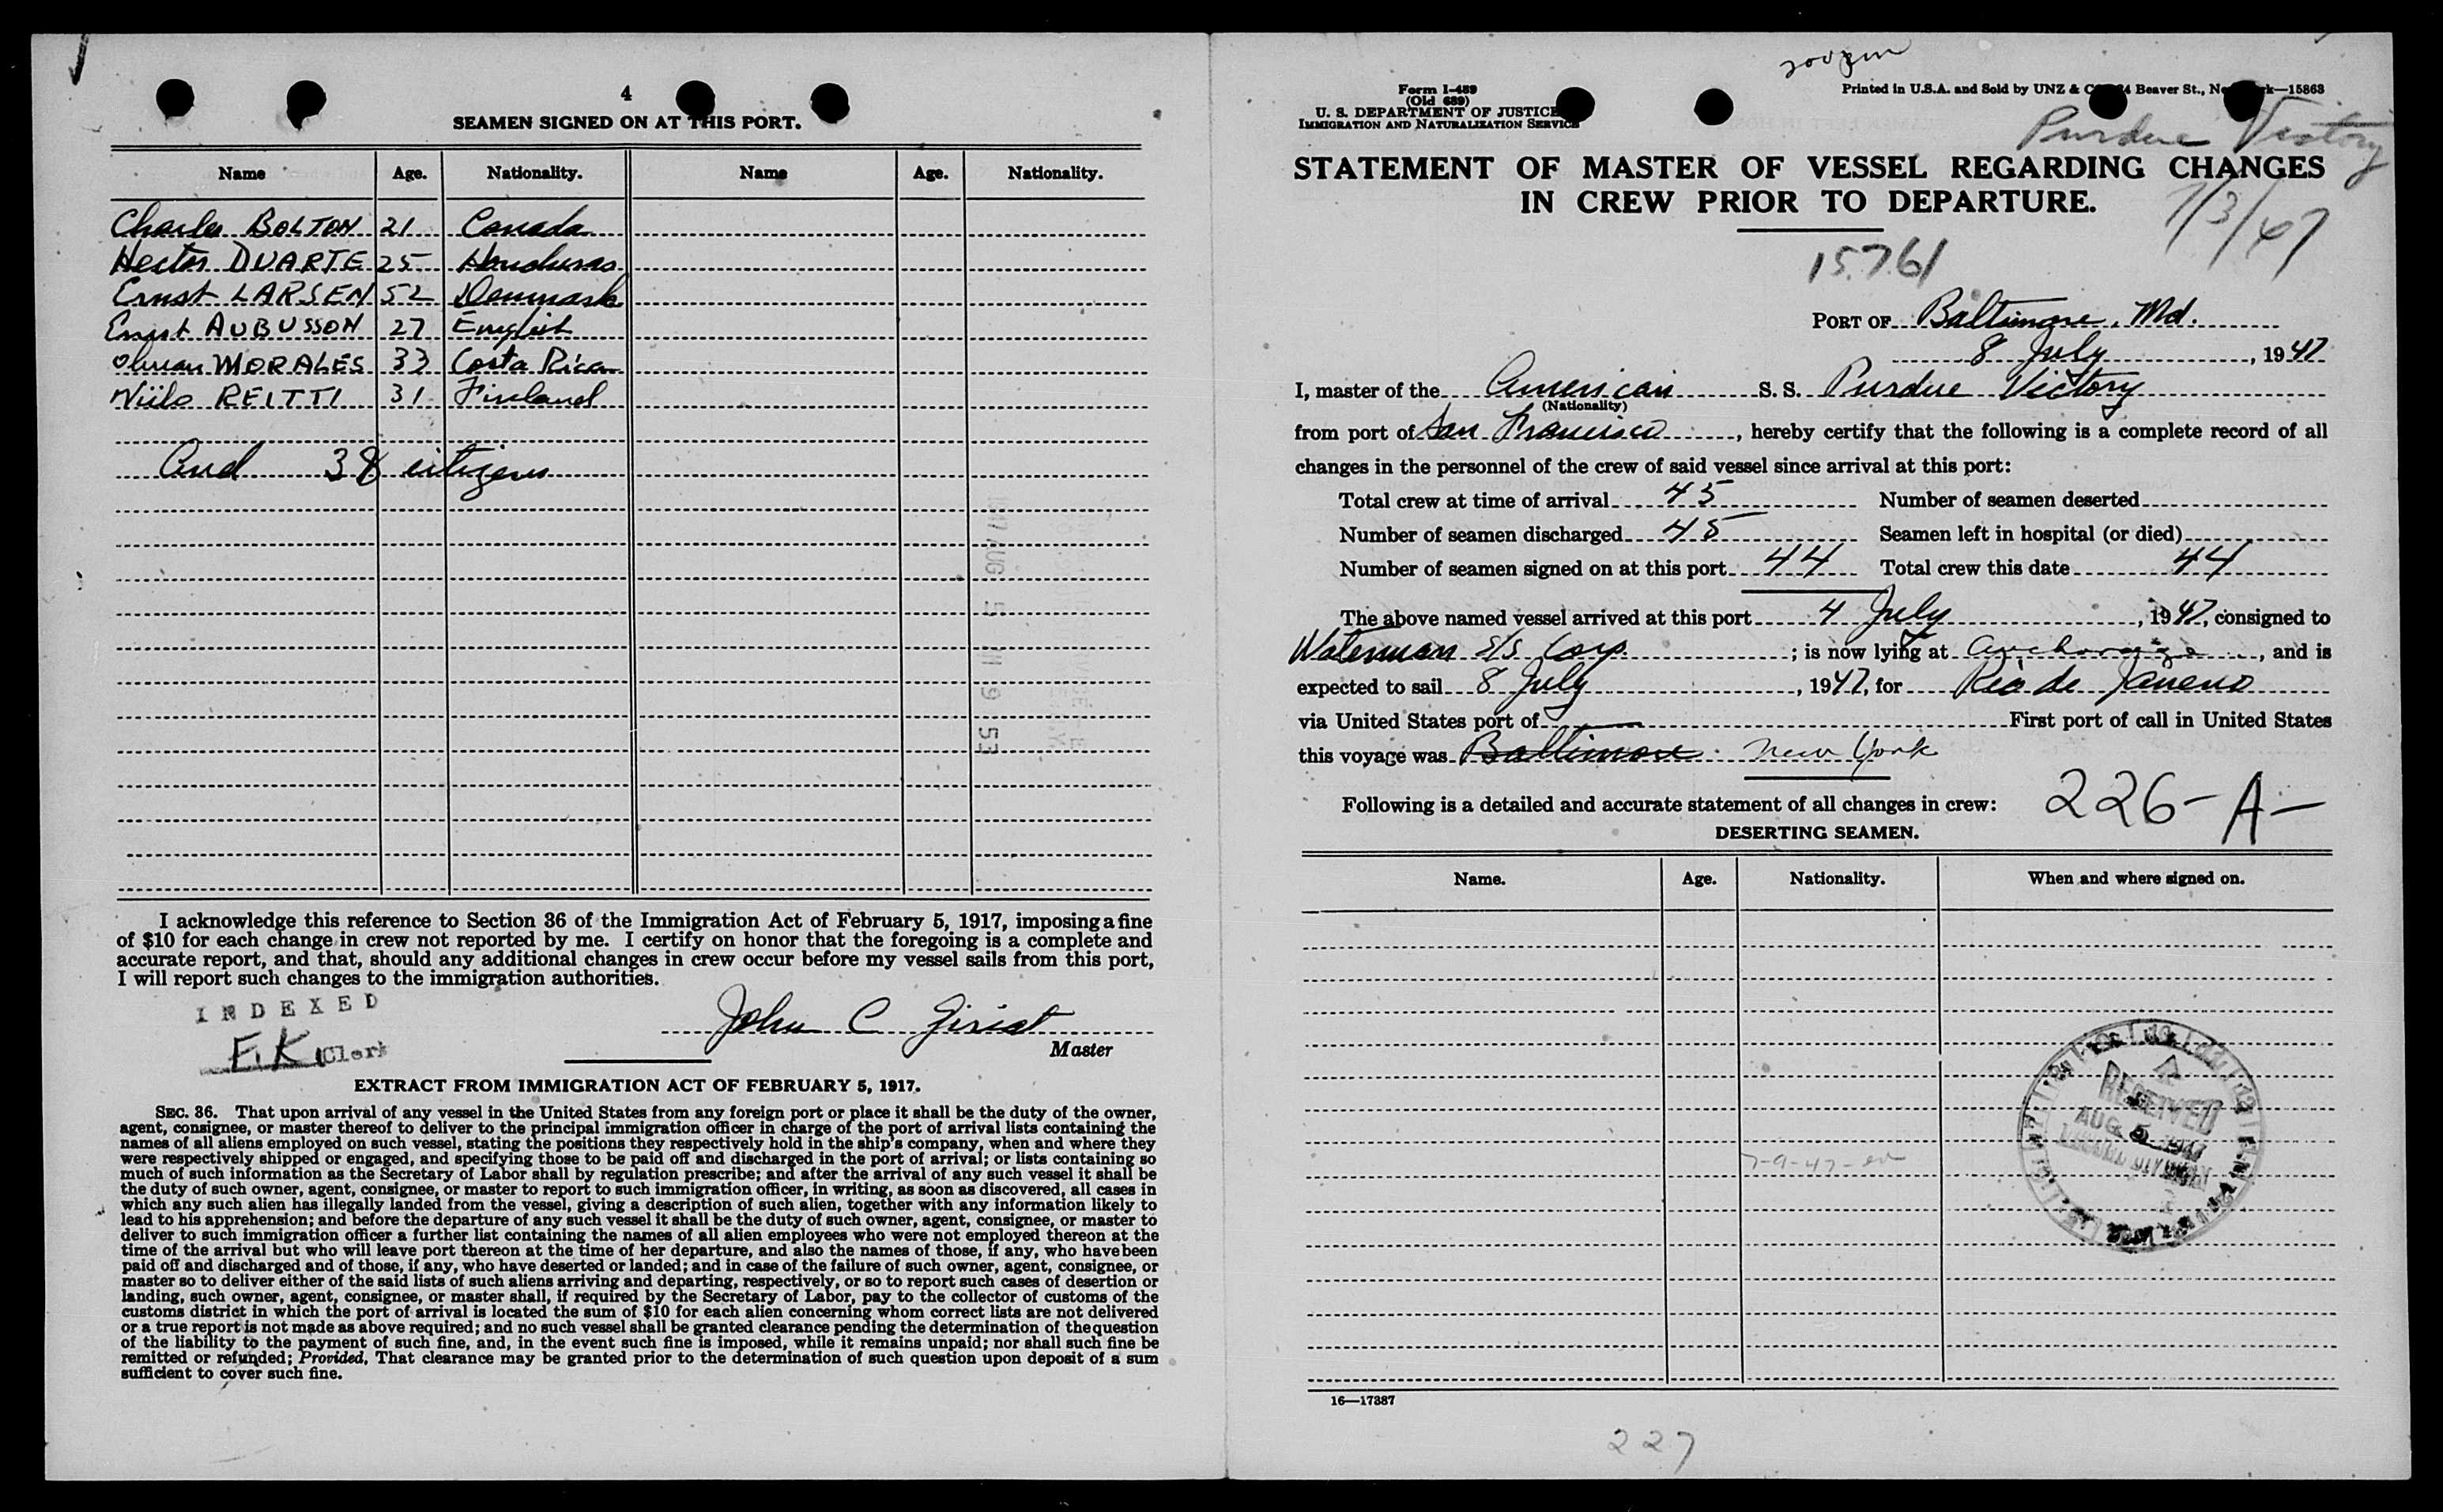 4
SEAMEN SIGNED ON AT THIS PORT.
Name Age. Nationality. Name Age. Nationality.
Charles BOLTON 21 Canada
Hector DUARTE 25 Honduras
Ernst LARSEN 52 Denmark
Ernst AUBUSSON 27 English
MORALES 33 Costa Rica
Niilo REITTI 31 Finland
And 38 citizens
I acknowledge this reference to Section 36 of the Immigration Act of February 5, 1917, imposing a fine
of $10 for each change in crew not reported by me. I certify on honor that the foregoing is a complete and
accurate report, and that, should any additional changes in crew occur before my vessel sails from this port,
I will report such changes to the immigration authorities.
INDEXED
E.K. Clerk
John C
Master
EXTRACT FROM IMMIGRATION ACT OF FEBRUARY 5, 1917.
SEC. 36. That upon arrival of any vessel in the United States from any foreign port or place it shall be the duty of the owner,
agent, consignee, or master thereof to deliver to the principal immigration officer in charge of the port of arrival lists containing the
names of all aliens employed on such vessel, stating the positions they respectively hold in the ship's company, when and where they
were respectively shipped or engaged, and specifying those to be paid off and discharged in the port of arrival; or lists containing so
much of such information as the Secretary of Labor shall by regulation prescribe; and after the arrival of any such vessel it shall be
the duty of such owner, agent, consignee, or master to report to such immigration officer, in writing, as soon as discovered, all cases in
which any such alien has illegally landed from the vessel, giving a description of such alien, together with any information likely to
lead to his apprehension; and before the departure of any such vessel it shall be the duty of such owner, agent, consignee, or master to
deliver to such immigration officer a further list containing the names of all alien employees who were not employed thereon at the
time of the arrival but who will leave port thereon at the time of her departure, and also the names of those, if any, who have been
paid off and discharged and of those, if any, who have deserted or landed; and in case of the failure of such owner, agent, consignee, or
master so to deliver either of the said lists of such aliens arriving and departing, respectively, or so to report such cases of desertion or
landing, such owner, agent, consignee, or master shall, if required by the Secretary of Labor, pay to the collector of customs of the
customs district in which the port of arrival is located the sum of $10 for each alien concerning whom correct lists are not delivered
or a true report is not made as above required; and no such vessel shall be granted clearance pending the determination of the question
of the liability to the payment of such fine, and, in the event such fine is imposed, while it remains unpaid; nor shall such fine be
remitted or refunded; Provided, That clearance may be granted prior to the determination of such question upon deposit of a sum
sufficient to cover such fine.
Form I-489
(Old 689)
U. S. DEPARTMENT OF JUSTICE
IMMIGRATION AND NATURALIZATION SERVICE
Printed in U.S.A. and Sold by UNZ & Beaver St., 15863
Purdue Victory
7/3/47
STATEMENT OF MASTER OF VESSEL REGARDING CHANGES
IN CREW PRIOR TO DEPARTURE.
15761
PORT OF Baltimore, Md.
8 July, 1947
I, master of the American S. S. Purdue Victory
(Nationality)
from port of San Francisco, hereby certify that the following is a complete record of all
changes in the personnel of the crew of said vessel since arrival at this port:
Total crew at time of arrival 45 Number of seamen deserted
Number of seamen discharged 45 Seamen left in hospital (or died)
Number of seamen signed on at this port 44 Total crew this date 44
The above named vessel arrived at this port 4 July, 1947, consigned to
Waterman S/S Corp.; is now lying at anchorage, and is
expected to sail 8 July, 1947, for Rio de Janeiro
via United States port of First port of call in United States
this voyage was Baltimore New York
Following is a detailed and accurate statement of all changes in crew: 226-A-
DESERTING SEAMEN.
Name. Age. Nationality. When and where signed on.
RECEIVED
AUG 5 1947
16—17387
227